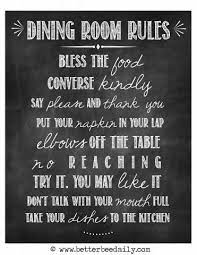 DINING ROOM RULES
BLESS THE food
CONVERSE kindly
SAY please AND thank you
PUT YOUR napkin IN YOUR LAP
elbows OFF THE TABLE
no REACHING
TRY IT, YOU MAY LIKE IT
DON'T TALK WITH YOUR mouth FULL
TAKE YOUR dishes TO THE KITCHEN
© www.betterbeedaily.com